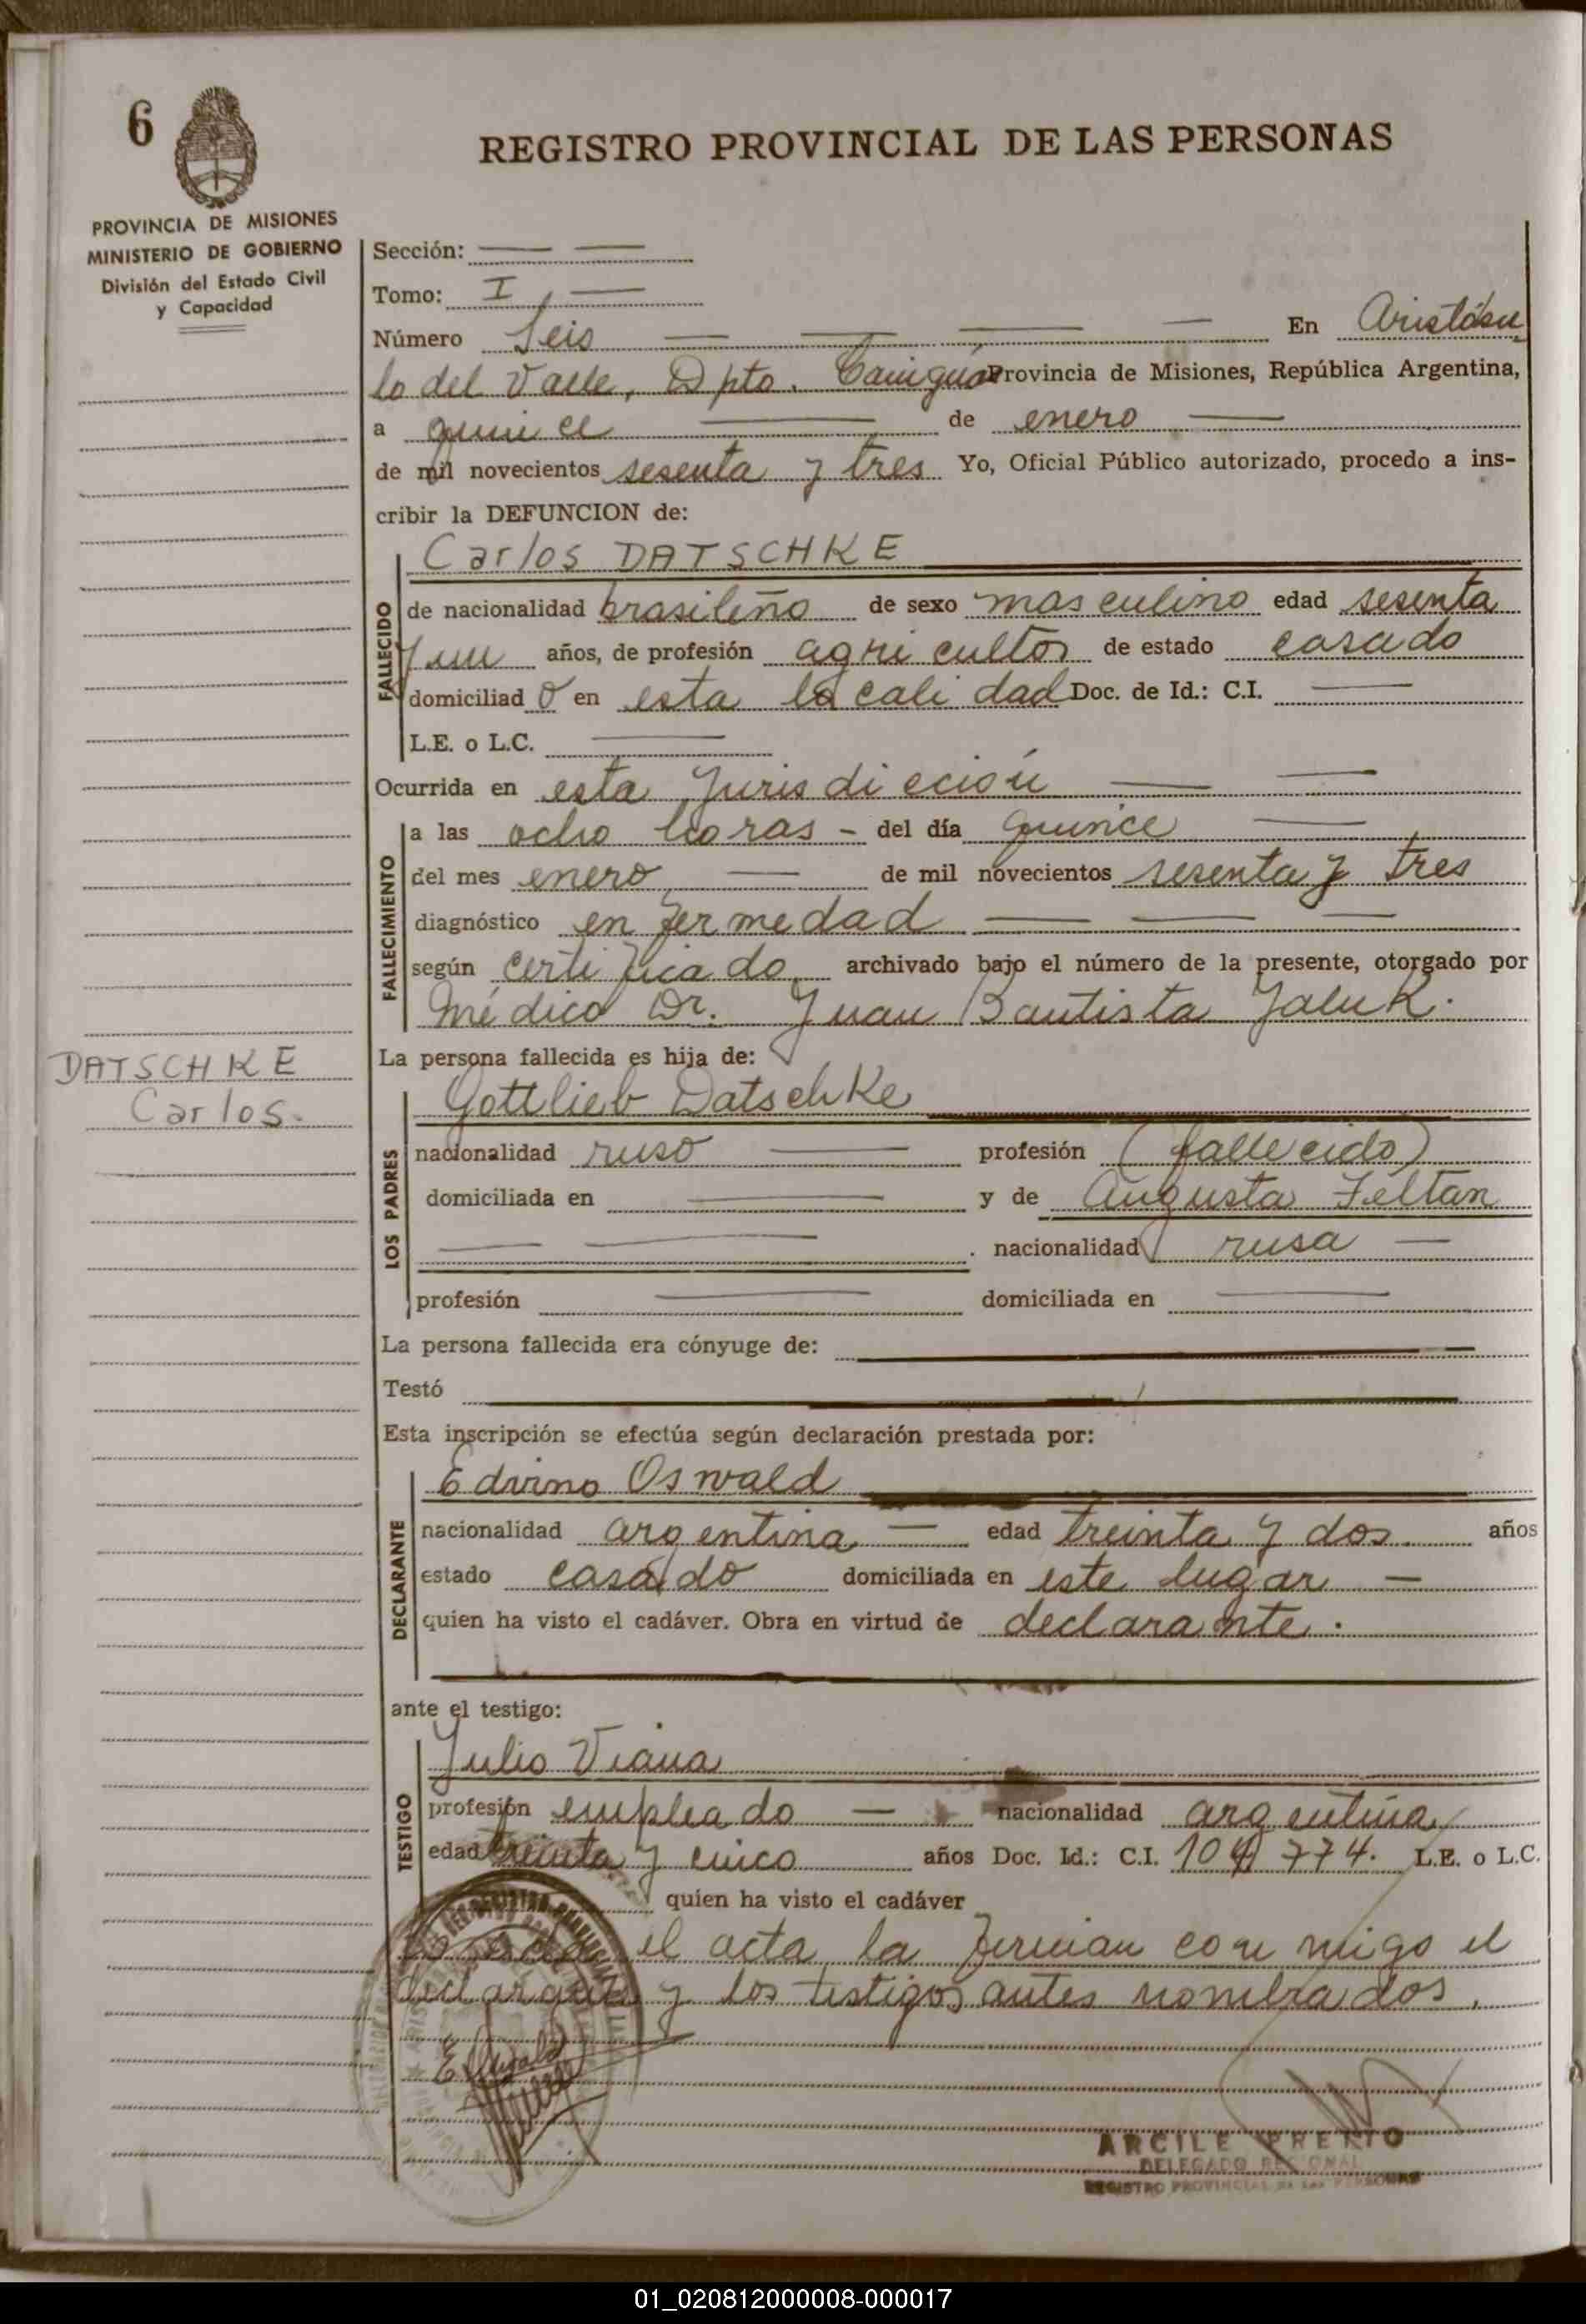 6
REGISTRO PROVINCIAL DE LAS PERSONAS
PROVINCIA DE MISIONES
MINISTERIO DE GOBIERNO
División del Estado Civil
y Capacidad
Sección:
Tomo: I
Número Seis En Aristóbu
lo del Valle, Dpto. Cainguás Provincia de Misiones, República Argentina,
a quince de enero
de mil novecientos sesenta y tres Yo, Oficial Público autorizado, procedo a ins-
cribir la DEFUNCION de:
FALLECIDO
Carlos DATSCHKE
de nacionalidad brasileño de sexo masculino edad sesenta
y un años, de profesión agricultor de estado casado
domiciliad o en esta localidad Doc. de Id.: C.I.
L.E. o L.C.
Ocurrida en esta Jurisdicción
FALLECIMIENTO
a las ocho horas - del día quince
del mes enero de mil novecientos sesenta y tres
diagnóstico enfermedad
según certificado archivado bajo el número de la presente, otorgado por
Médico Dr. Juan Bautista Jaluk.
La persona fallecida es hija de:
DATSCHKE
Carlos.
LOS PADRES
Gottlieb Datschke
nacionalidad ruso profesión (fallecido)
domiciliada en y de Augusta Feltan
nacionalidad rusa
profesión domiciliada en
La persona fallecida era cónyuge de:
Testó
Esta inscripción se efectúa según declaración prestada por:
DECLARANTE
Edvino Oswald
nacionalidad argentina edad treinta y dos. años
estado casado domiciliada en este lugar
quien ha visto el cadáver. Obra en virtud de declarante.
ante el testigo:
TESTIGO
Julio Viana
profesión empleado nacionalidad argentina
edad treinta y cinco años Doc. Id.: C.I. 104 774. L.E. o L.C.
quien ha visto el cadáver
el acta la firman conmigo el
declarante y los testigos antes nombrados.
ARCILE PRETTO
DELEGADO REGIONAL
REGISTRO PROVINCIAL DE LAS PERSONAS
01_020812000008-000017